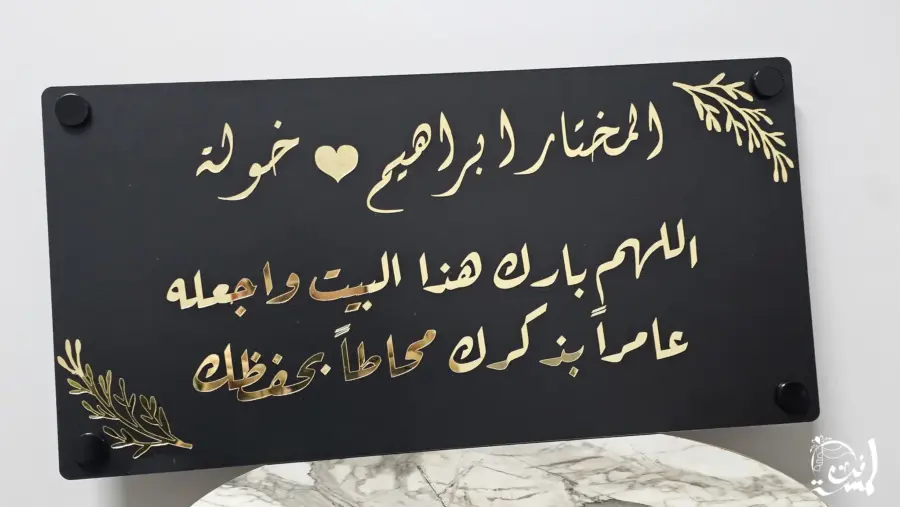 المختار ابراهيم ♥ خولة
اللهم بارك هذا البيت واجعله
عامراً بذكرك محاطاً بحفظك